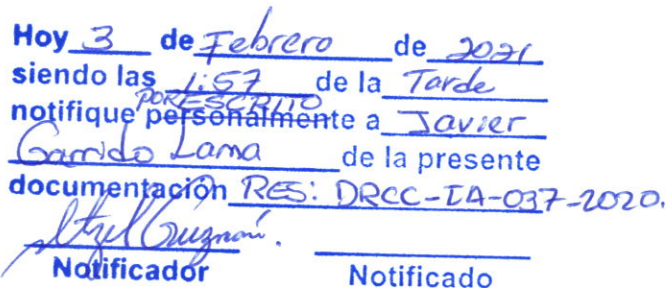 Hoy 3 de Febrero de 2021
siendo las 1:57 de la Tarde
POR ESCRITO
notifique personalmente a Javier
Garrido Lama de la presente
documentación RES: DRCC-IA-037-2020.
Itzel Guzmán.
Notificador Notificado